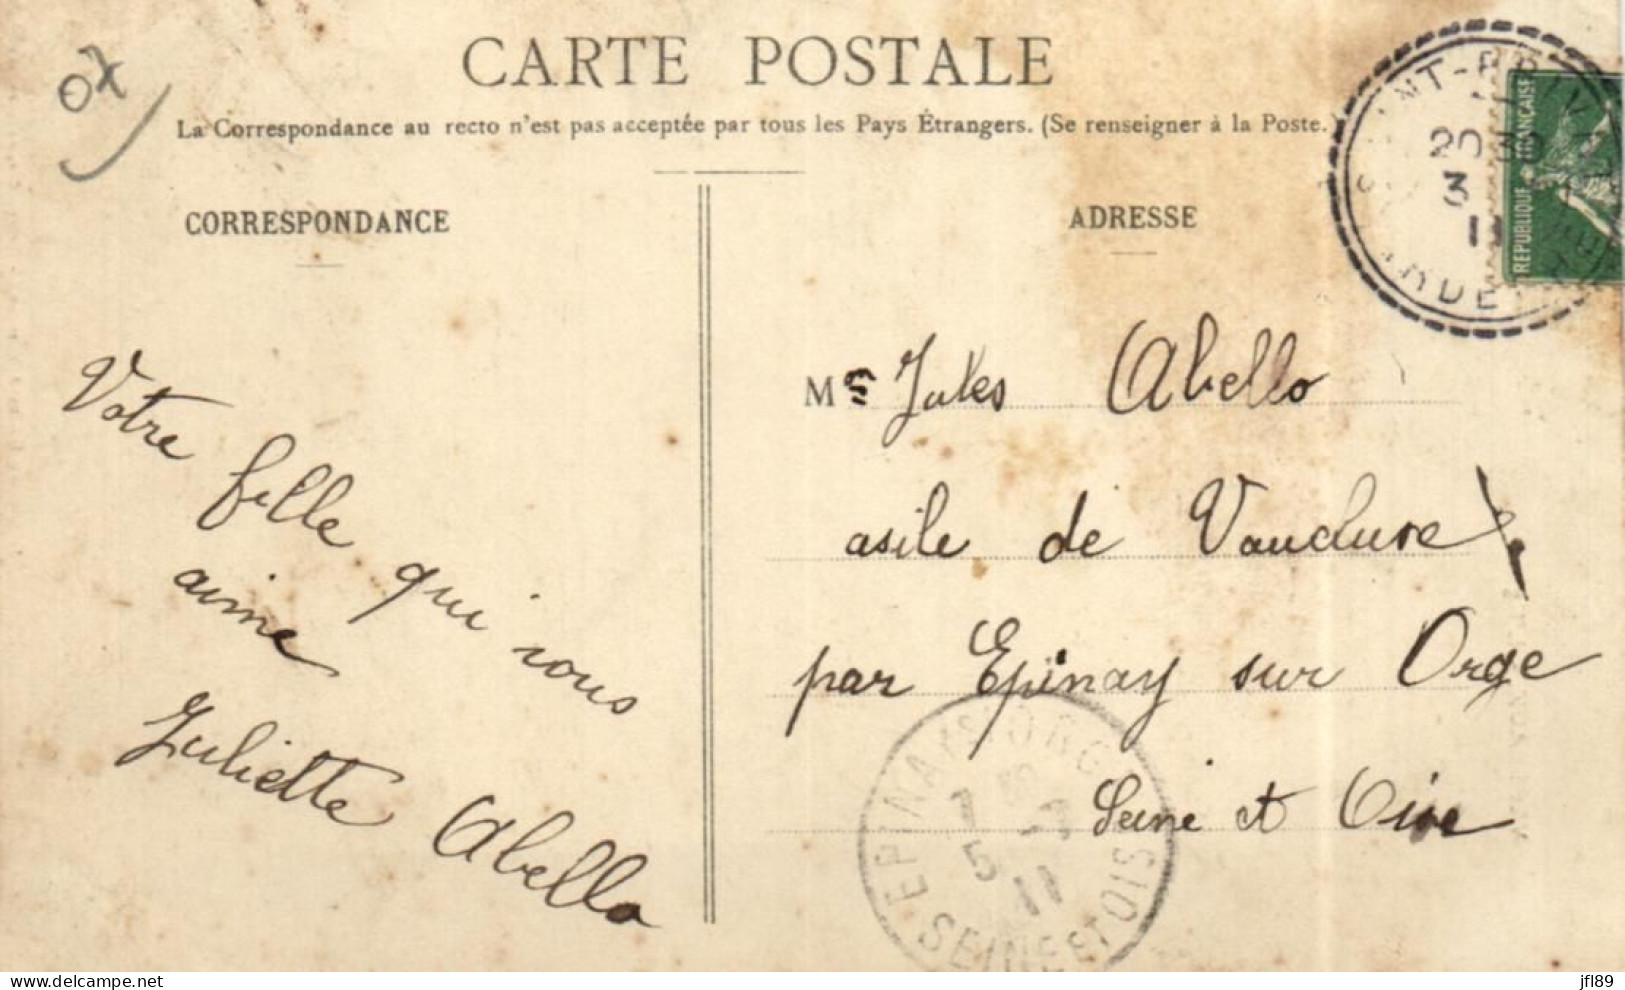 CARTE POSTALE
La Correspondance au recto n'est pas acceptée par tous les Pays Étrangers. (Se renseigner à la Poste.)
07
CORRESPONDANCE
ADRESSE
RÉPUBLIQUE FRANÇAISE
20
3
11
Votre
fille qui vous
aime
Juliette Abello
M Jules Abello
asile de Vaucluse
par Epinay sur Orge
Seine et Oise
EPINAY S ORGE
7 7
5 11
SEINE ET OISE
delcampe.net
jfl89